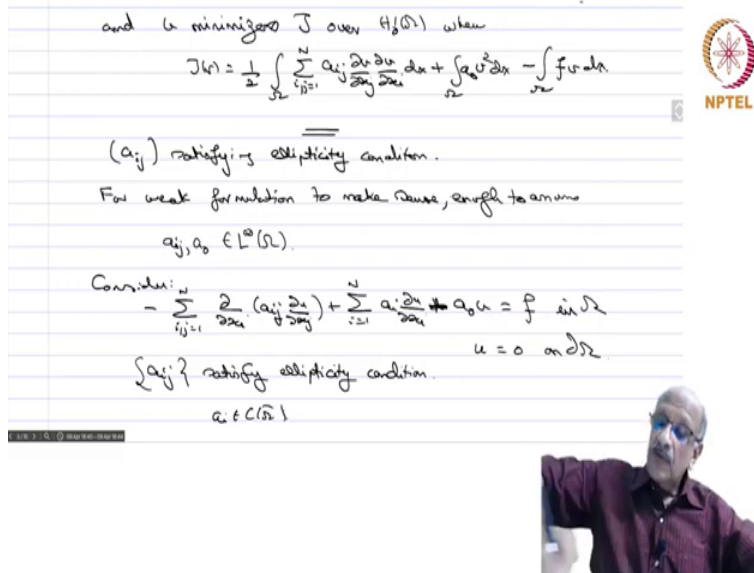 and u minimizes J over H₀¹(Ω) when
NPTEL
J(v) = 1/2 ∫_Ω Σ_{i,j=1}^N a_ij ∂v/∂x_j ∂v/∂x_i dx + ∫_Ω a₀v²dx - ∫_Ω fv dx.
(a_ij) satisfying ellipticity condition.
For weak formulation to make sense, enough to assume
a_ij, a₀ ∈ L^∞(Ω).
Consider:
- Σ_{i,j=1}^N ∂/∂x_i (a_ij ∂u/∂x_j) + Σ_{i=1}^N a_i ∂u/∂x_i + a₀u = f in Ω
u = 0 on ∂Ω.
{a_ij} satisfy ellipticity condition.
a_i ∈ C(Ω̄)